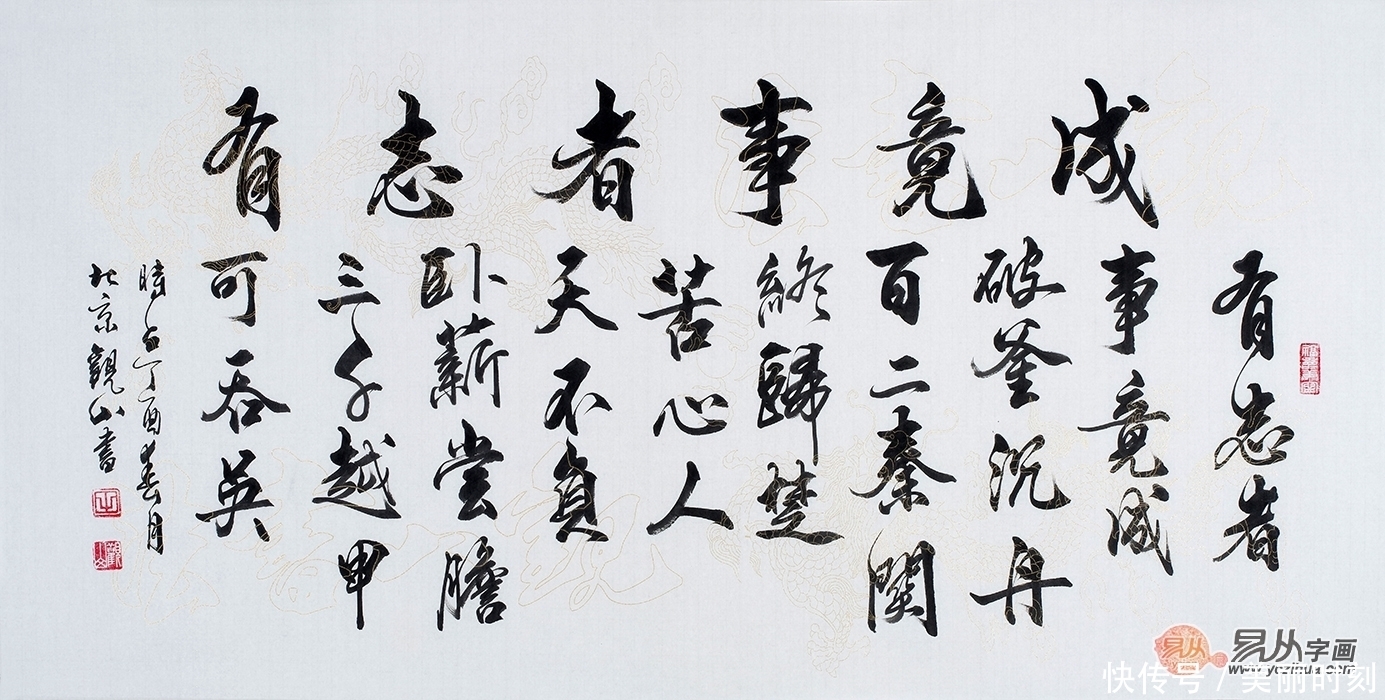 有志者事竟成
有志者
事竟成
破釜沉舟
百二秦關
終歸楚
苦心人
天不負
卧薪尝膽
三千越甲
可吞吴
時在丁酉春月
北京觀山書
易从字画
www.yczihua.com
快传号 / 美丽时刻